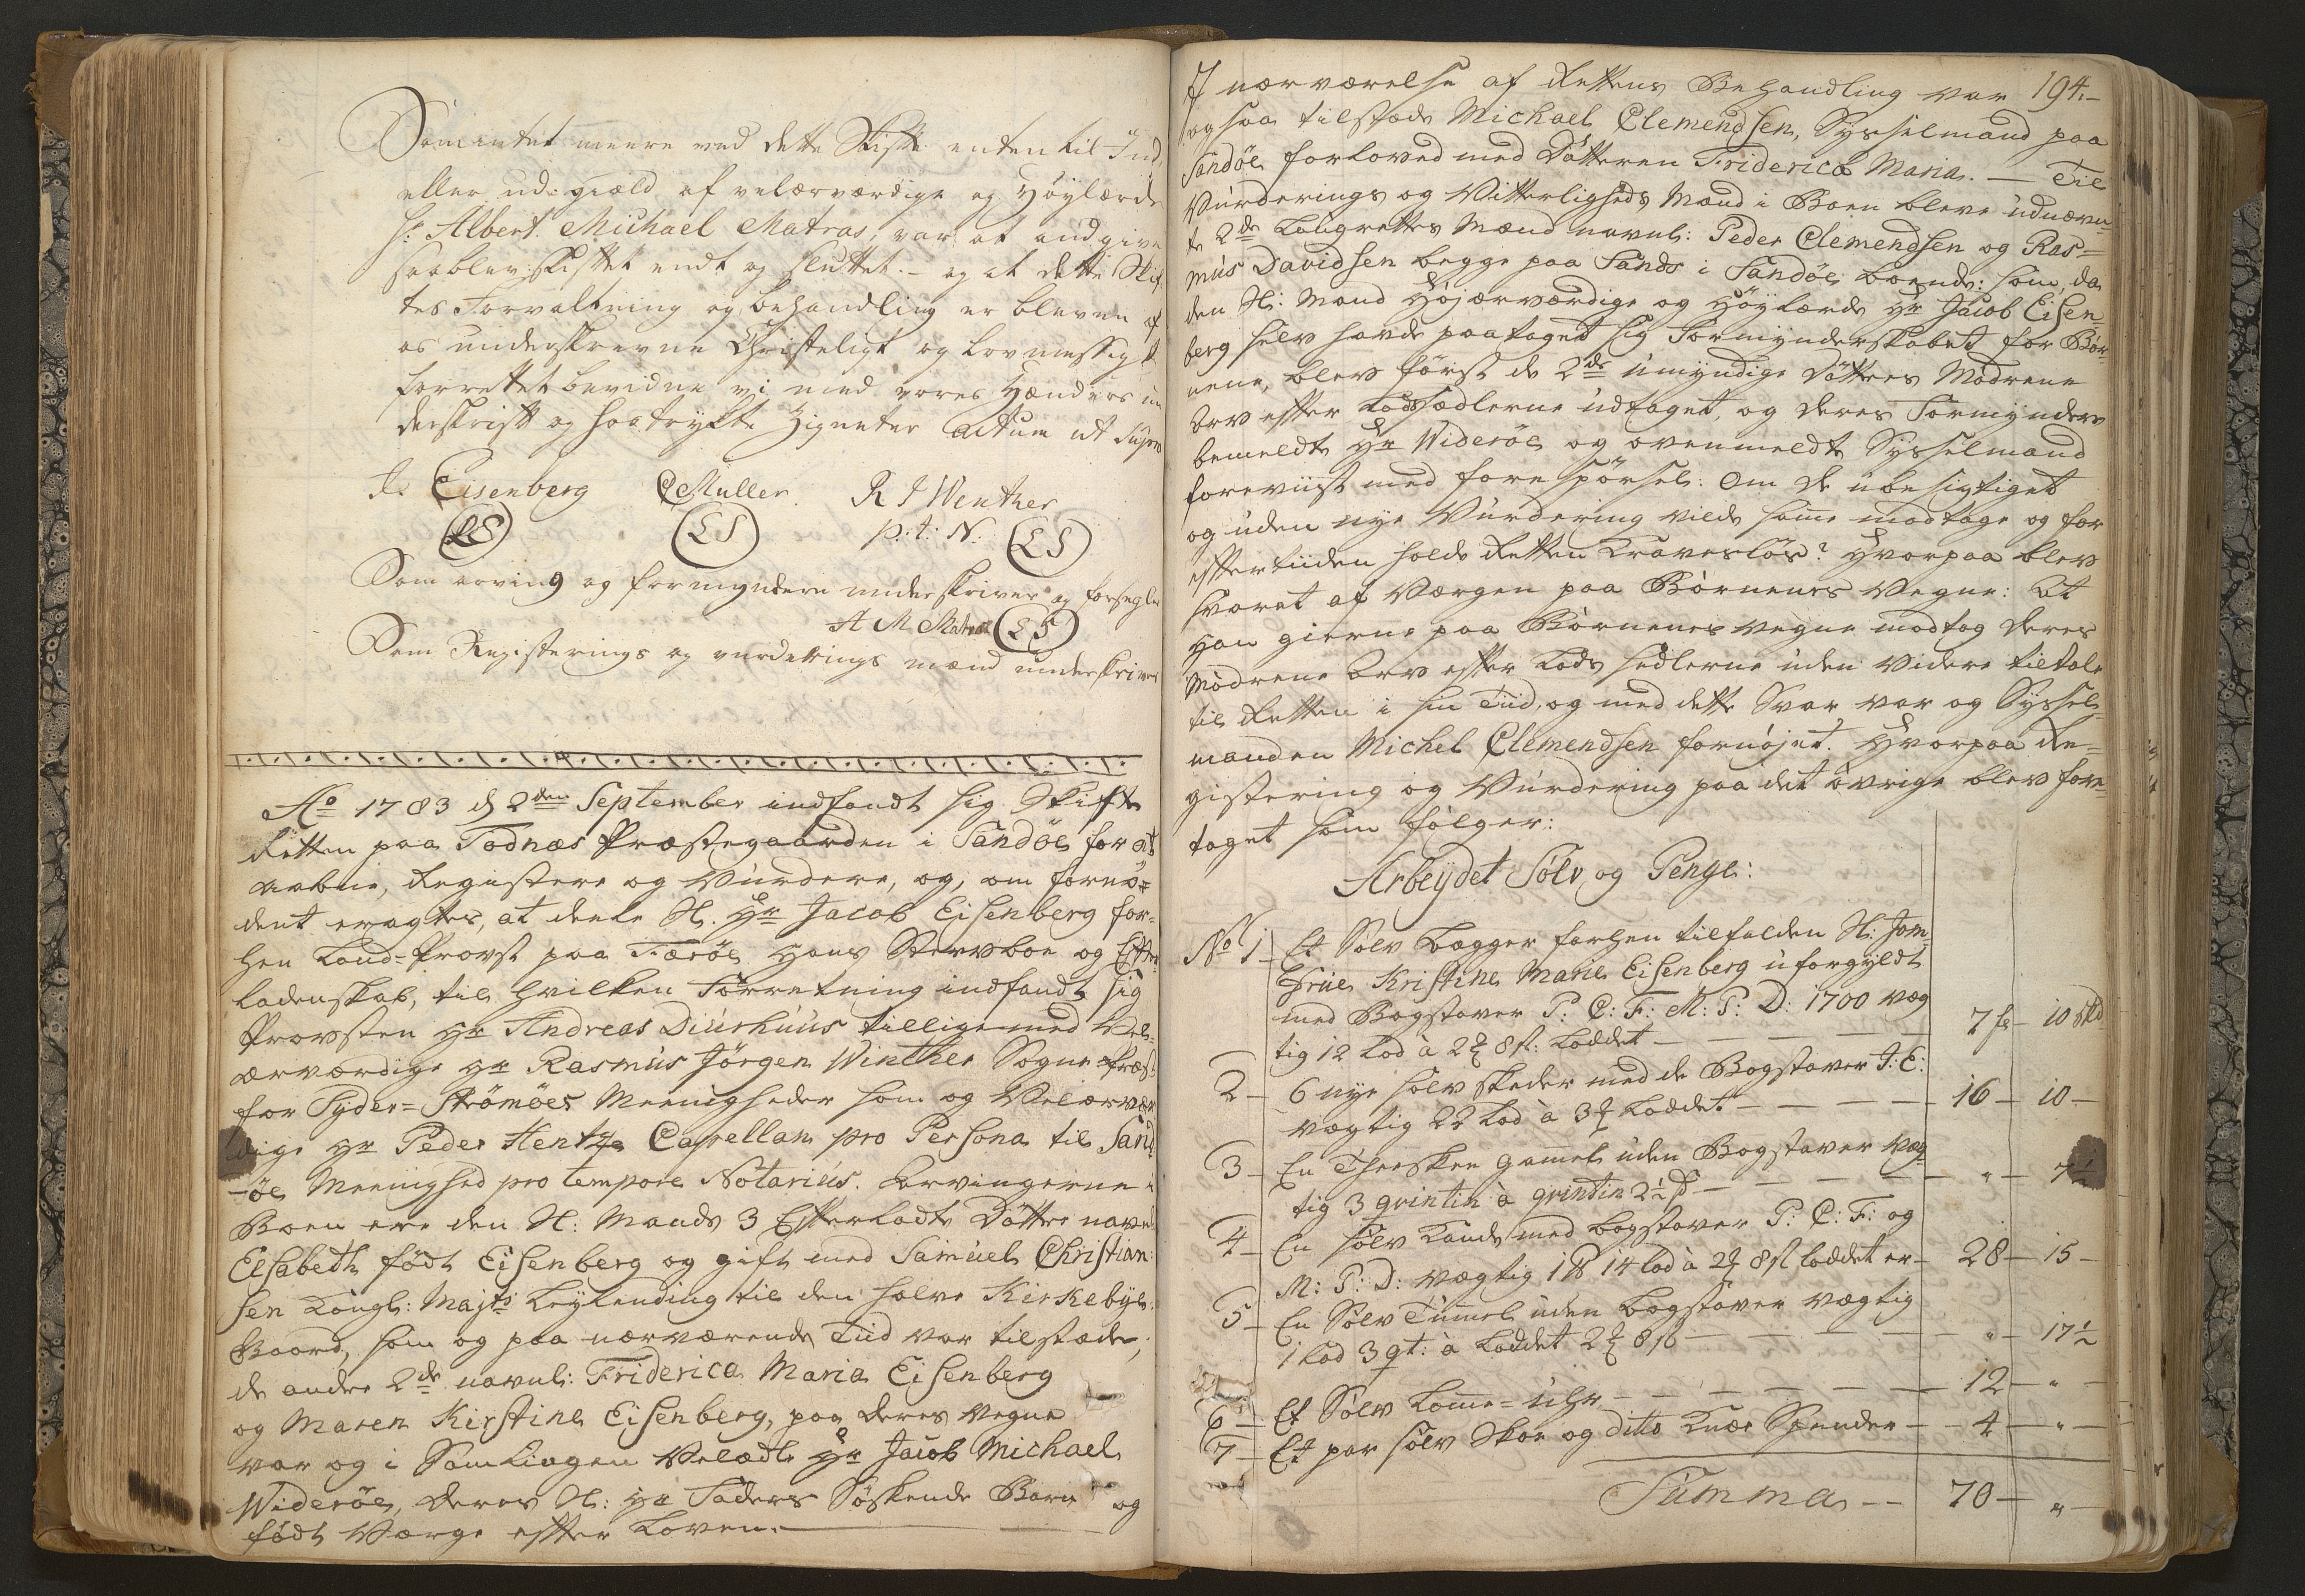 Som intet meere ved dette Skifte enten til Ind,
eller ud-giæld af velærværdige og Høylærde
Hr: Albert Michael Matras, var at andgive
saa blev skiftet endt og sluttet. – og at dette Skif-
tes Forvaltning og behandling er bleven af
os underskrevne Christeligt og lovmessigt
forrettet bevidne vi med vores Hænders un
derskrift og hostrykte Zigneter Actum ut supra
J. Eisenberg CMuller R J Wenther
LS LS p. t: N. LS
Som arving og formyndere underskriver og forsegler
A M Matras LS
Som Registerings og vurderings mænd underskriver
Ao 1783 d 2den September indfandt sig Skifte
Retten paa Todnæs Præstegaarden i Sandöe for at
aabne, Registere og Vurdere, og, om fornö=
dent eragtes, at deele Sl. Hr Jacob Eisenberg for=
hen Land-Provst paa Færöe Hans Stervboe og Efter-
ladenskab, til hvilken Forretning indfandt sig
Provsten Hr Andreas Diurhuus tilligemed Vel=
ærværdige Hr Rasmus Jörgen Winther Sogne Præst
for Syder=Strömöes Meenigheder som og Velærvær
dige Hr Peder Hentze Capellan pro Persona til Sand
-öe Meenighed pro tempore Notarius. Arvingerne i
Boen ere den Sl: Mands 3 Efterladte Döttre navnl
Elsabeth födt Eisenberg og gift med Samuel Christian-
sen Kongl: Majts Leylending til den halve Kirkebye
Gaard, som og paa nærværende Tiid var tilstæde,
de andre 2de navnl: Friderica Maria Eisenberg
og Maren Kirstine Eisenberg, paa deres vegne
var og i Samlingen Velædle Hr Jacob Michael
Wideröe, deres Sl: Hr Faders Söskende Barn og
födt Værge efter Loven.
194.
I nærværelse af Rettens Behandling var
ogsaa tilstæde Michael Clemendsen, Sysselmand paa
Sandöe forloved med Datteren Friderica Maria. — Til
Vurderings og Vitterligheds Mænd i Boen bleve udnævn-
te 2de Laugrettes Mænd navnl: Peder Clemendsen og Ras=
mus Davidsen begge paa Sands i Sandöe boende: som, da
den Sl: Mand Höjærværdige og Höylærde Hr Jacob Eisen-
berg selv havde paataget sig Formynderskabet for Bör-
nene, blev först de 2de umyndige Döttres Mödrene
Arv efter Lodssedlerne udtaget, og deres Formynder
bemeldte Hr Wideröe og ovenmeldte Sysselmand
foreviist med forespörsel: Om de ubesigtiget
og uden nye Vurdering vilde samme modtage og for
eftertiden holde Retten Kravesløs? Hvorpaa blev
svaret af Værgen paa Börnenes Vegne: At
Han gierne paa Börnenes vegne modtog deres
Mödrene Arv efter Lods sedlerne uden videre tiltale
til Retten i sin Tiid, og med dette Svar var og Syssel-
manden Michel Clemendsen fornöjet. Hvorpaa Re=
gistering og Vurdering paa det övrige blev fore-
taget som fölger:
Arbeydet Sölv og Penge:
No 1 Et Sölv Bægger forhen tilfalden Sl: Jom-
frue Kristine Marie Eisenberg uforgyldt
med Bogstaver P: C: F: M: P: D: 1700 væg
tig 12 Lod à 2 8 s: Loddet — 7 – 10
2 – 6 nye sölv skeder med de Bogstaver J: E:
vægtig 22 Lod à 3 Loddet — 16 – 10 –
3 – En Theeskee gamel uden Bogstaver væg
tig 3 qvintin à qvintin 2½ — " – 7½
4 – En sölv Kande med bogstaver P: C: F: og
M: P: D: vægtig 1 14 Lod à 2 8 loddet er – 28 – 15 –
5 – En Sölv Tummel uden bogstaver vægtig
1 Lod 3 qt: à Loddet 2 8 — " – 17½
6 – Et Sölv Lomme=uhr — 12 – " –
7 – Et par sölv Skoe og ditto Knæe Spender – 4 – " –
Summa – 70 – " –